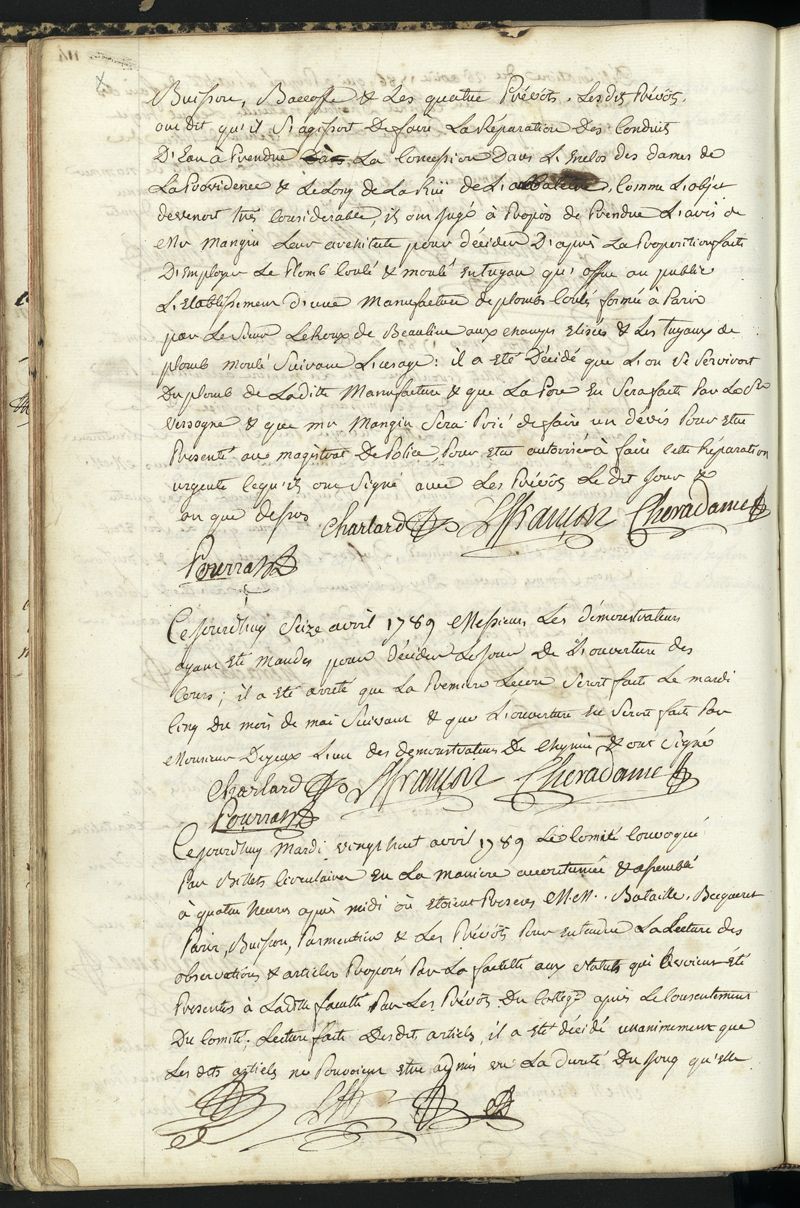 Buisson, Bacoffe & Les quatre Prévôts. Lesdits Prévôts.
ont dit qu'il S'agissoit De faire La Réparation Des Conduit
D'Eau à Prendre La Concession Dans L'Enclos des dames de
La Providence & Le Long de La Rue de L'arbalêtre, Comme L'objet
devenoit très Considerable, ils ont jugé à Propos de Prendre L'avis de
Mr Mangin Leur architecte pour décider D'après La Proposition faite
D'Employer Le Plomb Coulé & moulé en tuyau qu'offre au public
L'Etablissement d'une Manufacture de plombs Coulés formée à Paris
par Le Sieur LeRoux de Beaulieu aux champs Elisées & Les Tuyaux de
plomb moulé Suivant L'usage: il a été Décidé que L'on Se Serviroit
Du plomb de Ladite Manufacture & que La Pose En Sera faite Par Le Sr
Versogne & que mr Mangin Sera Prié de faire un dévis Pour Etre
Présenté au magistrat De Police, Pour Etre autorisé à faire Cette Réparation
urgente Ce qu'ils ont Signé avec Les Prévôts Le dit Jour &
an que dessus Charlard Lffrançois Cheradame
Pourrat
Cejourd'huy Seize avril 1789 Messieurs Les démonstrateurs
ayant été mandés pour décider Le Jour De L'ouverture des
Cours; il a été arreté que La Premiere Lecon Seroit faite Le mardi
Cinq Du mois de mai Suivant & que L'ouverture En Seroit faite Par
Monsieur Deyeux L'un des demonstrateurs De Chymie, & ont Signé
Charlard Lffrançois Cheradame
Pourrat
Cejourd'huy Mardi vingt huit avril 1789 Le Comité Convoqué
Par Billets Circulaires En La maniere accoutumée & assemblé
à quatre heures après midi où Etoient Présens M.M. Bataille. Becqueret
Paris, Buisson, Parmentier & Les Prévôts Pour entendre La Lecture des
observations & articles Proposés Par La faculté aux Statuts qui avoient été
Presentés à Ladite faculté Par Les Prévôts Du College après Le Consentement
Du Comité; Lecture faite Desdits articles, il a été décidé unanimement que
Les dits articles ne Pouvoient Etre admis vu La dureté Du Joug qu'elle